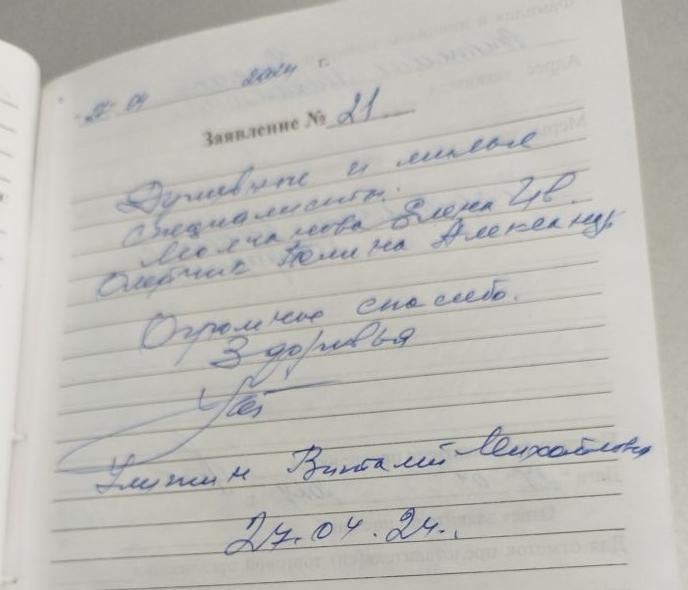 27 04 2024 г.
Заявление № 21
Душевные и милые
специалисты.
Молчанова Елена Ив.
Полина Александр
Огромное спасибо.
Здоровья
Виталий Михайлович
27.04.24.